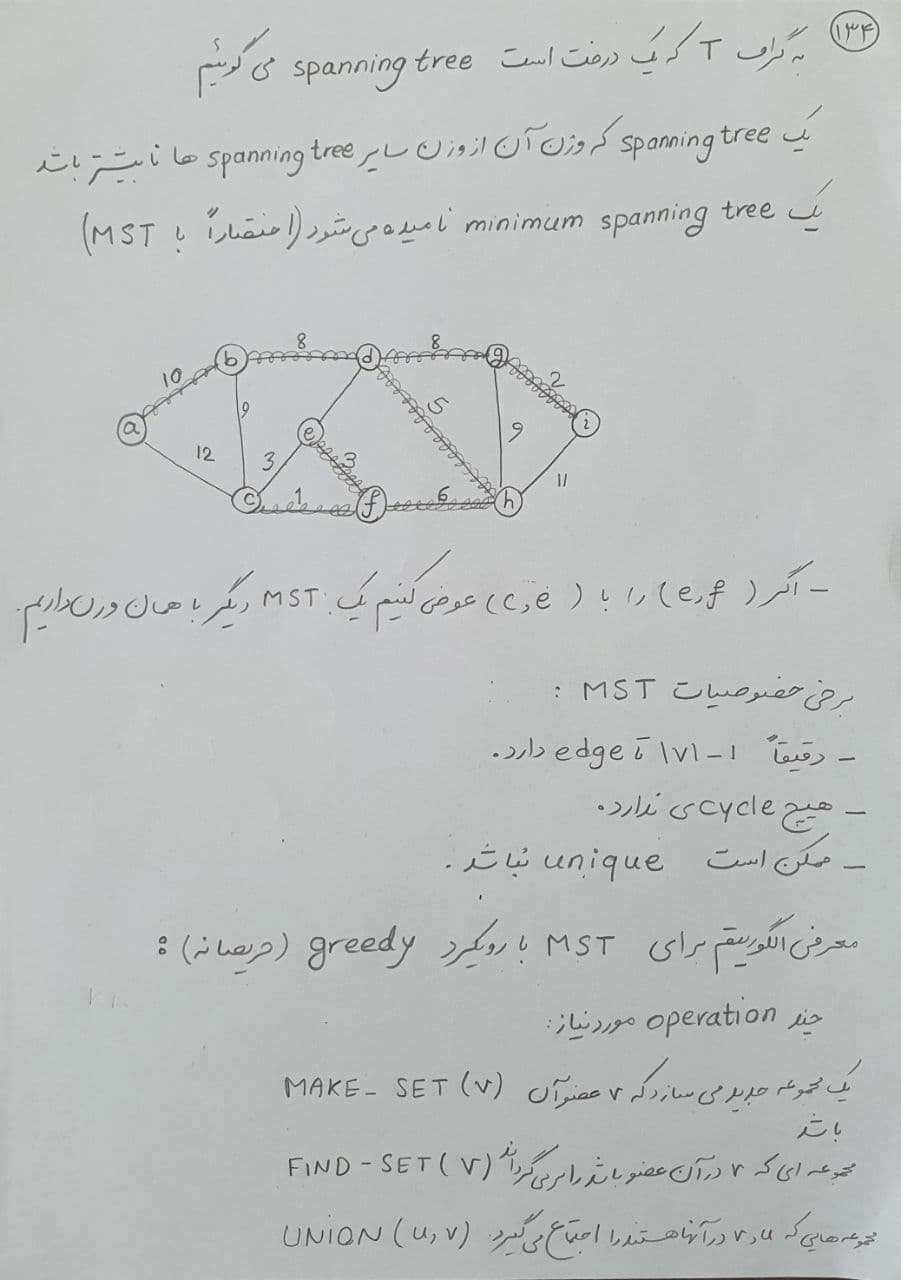 ۱۳۴
به گراف T که یک درخت است spanning tree می گوئیم
یک spanning tree که وزن آن از وزن سایر spanning tree ها نابیشتر باشد
یک minimum spanning tree نامیده می شود (اختصاراً با MST)
8 8
b d g
10 2
9 5 i
a e
12 3 3 9
11
c 1 f 6 h
- اگر (e,f) را با (c,e) عوض کنیم یک MST دیگر با همان وزن داریم.
برخی خصوصیات MST :
- دقیقاً |V|-1 تا edge دارد.
- هیچ cycle ی ندارد.
- ممکن است unique نباشد.
معرفی الگوریتم برای MST با رویکرد greedy (حریصانه) :
چند operation مورد نیاز:
MAKE-SET (v) یک مجموعه جدید می سازد که v عضو آن
باشد
FIND-SET (v) مجموعه ای که v در آن عضو باشد را برمی گرداند
UNION (u,v) مجموعه هایی که u و v در آنها هستند را اجتماع می گیرد.